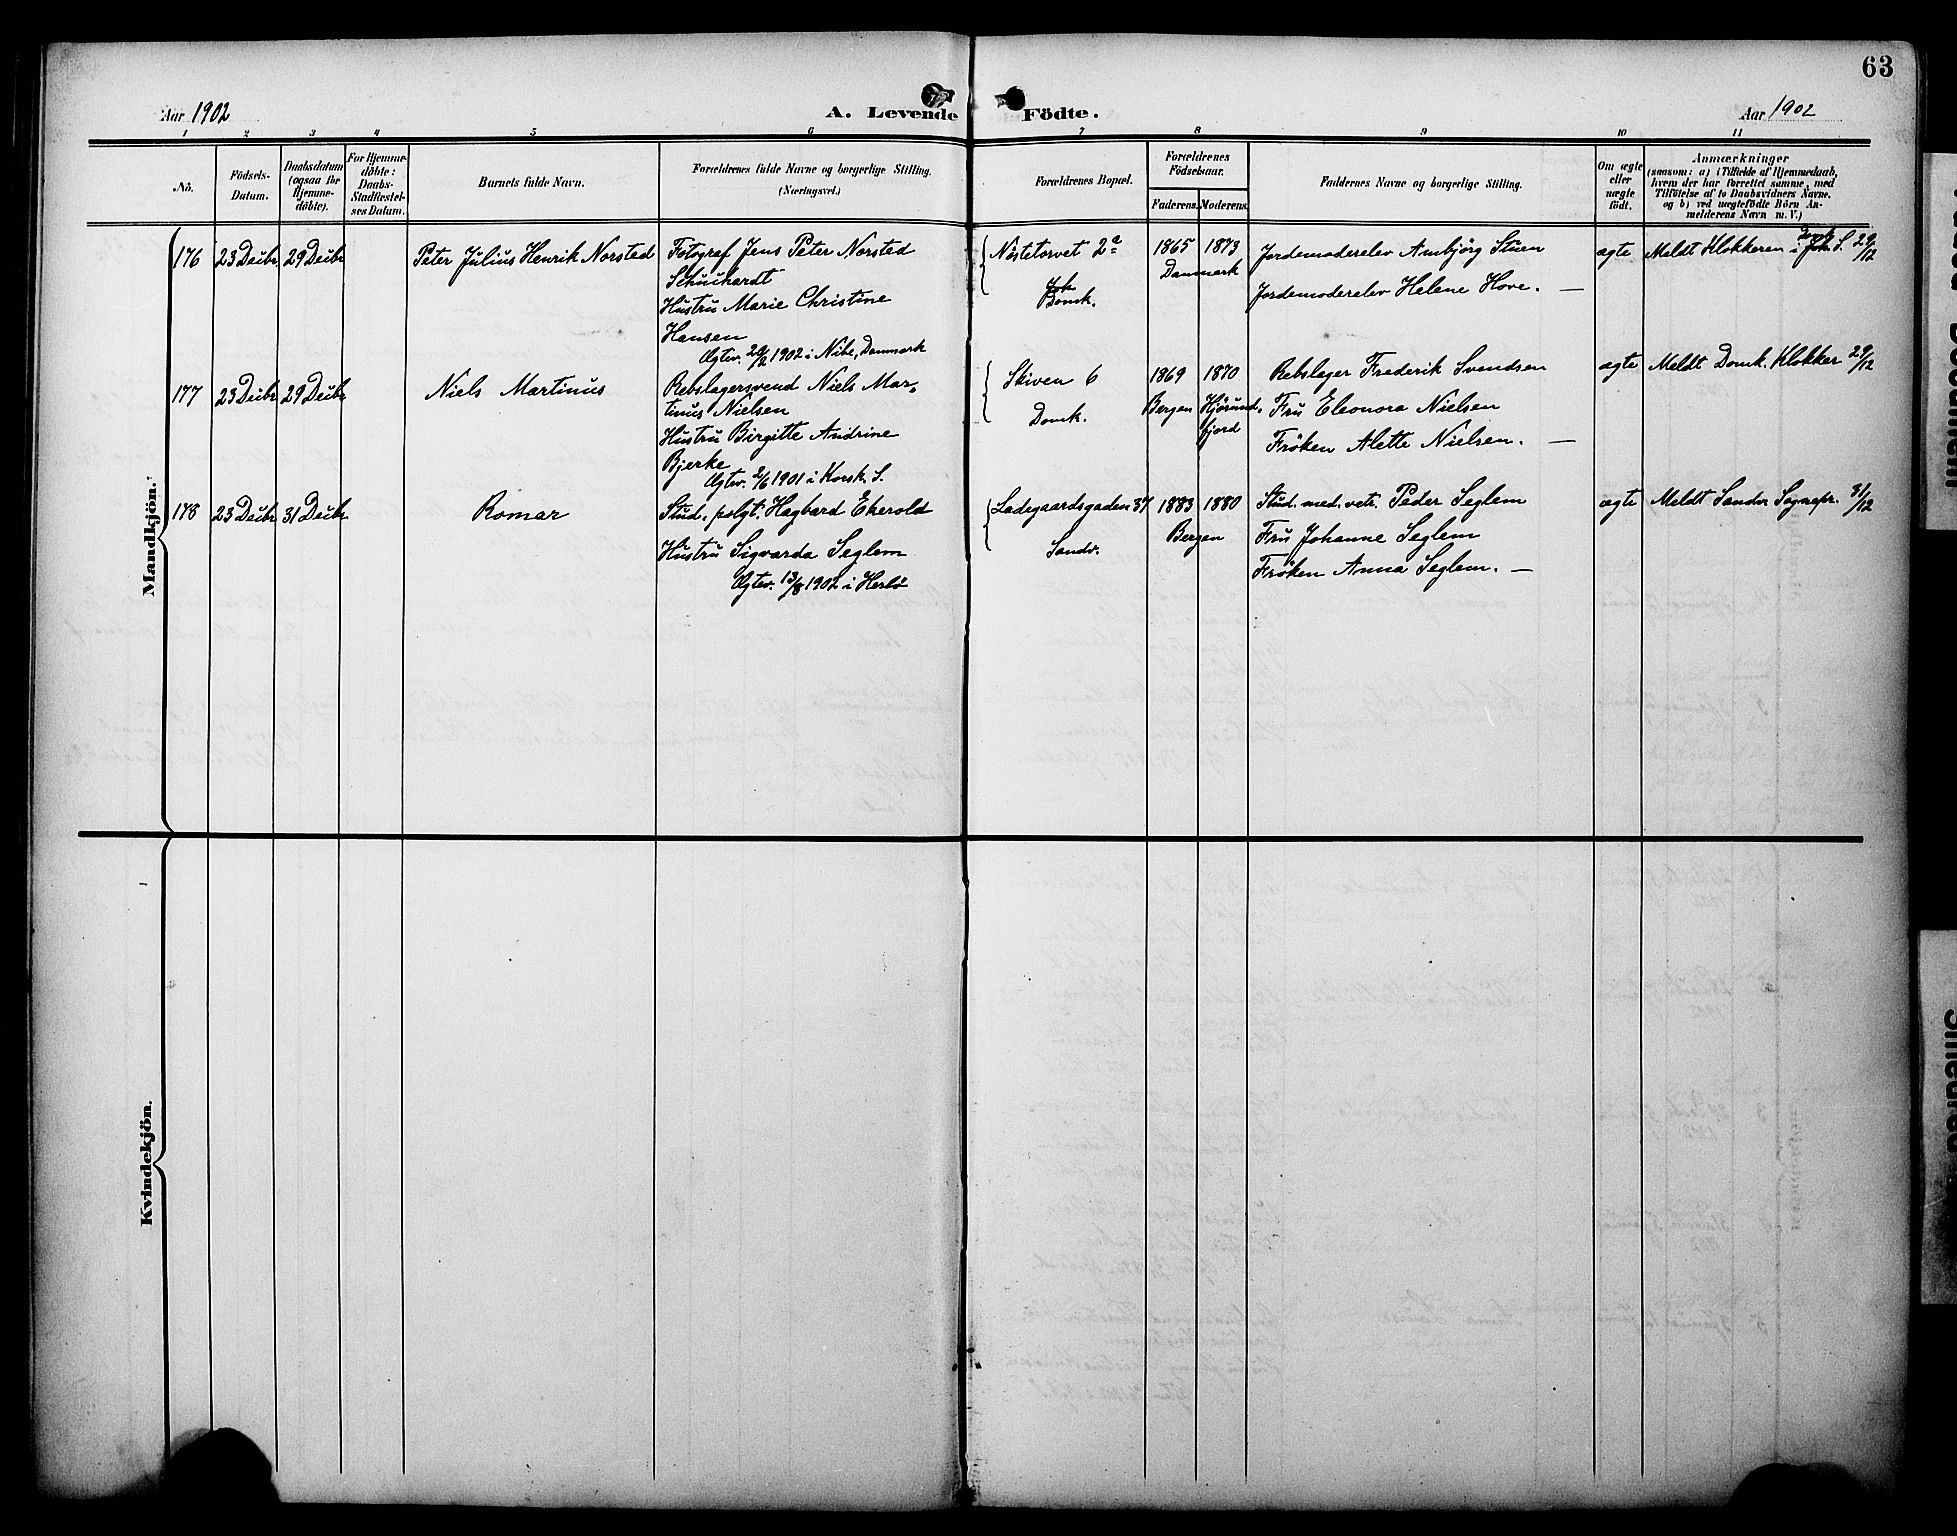 63
Aar 1902
A. Levende Födte.
Aar 1902
1 2 3 4 5 6 7 8 9 10 11
No.
Födsels-Datum.
Daabsdatum (ogsaa for Hjemme-döbte).
For Hjemme-döbte: Daabs-Stadfæstel-ses Datum.
Barnets fulde Navn.
Forældrenes fulde Navne og borgerlige Stilling.
(Næringsvei.)
Forældrenes Bopæl.
Forældrenes Födselsaar.
Faderens. Moderens.
Faddernes Navne og borgerlige Stilling.
Om ægte eller uægte födt.
Anmærkninger
(saasom: a) i Tilfælde af Hjemmedaab,
hvem der har forrettet samme, med
Tilföielse af to Daabsvidners Navne,
og b) ved uægtefödte Börn An-
melderens Navn m. V.)
Mandkjön.
176 23 Decbr. 29 Decbr. Peter Julius Henrik Norsted
Fotograf Jens Peter Norsted
Schuchardt
Hustru Marie Christine
Hansen
Ægtev. 1902 i Nibe, Danmark
Nöstetorvet 2a
Joh
Domk.
1865 1873
Danmark
Jordemoderelev Ambjörg Stuen
Jordemoderelev Helene Hove. —
ægte
Meldt Klokkeren i Joh. S. 29/12
Domk
177 23 Decbr 29 Decbr Niels Martinus
Rebslagersvend Niels Mar-
tinus Nielsen
Hustru Birgitte Andrine
Bjerke
Ægtev. 2/6 1901 i Korsk. S.
Skiven 6
Domk.
1869 1870
Bergen Hjörund-
fjord
Rebslager Frederik Svendsen
Fru Eleonora Nielsen
Fröken Alette Nielsen. —
ægte
Meldt Domk. Klokker 29/12
178 23 Decbr 31 Decbr. Romar
Stud. polyt. Hagbard Ekerold
Hustru Sigvarda Seglem
Ægtev. 13/8 1902 i Herlö
Ladegaardsgaden 37
Sandv.
1883 1880
Bergen
Stud. med. vetr. Peder Seglem
Fru Johanne Seglem
Fröken Anna Seglem. —
ægte
Meldt Sandv Sognepr. 31/12
Kvindekjön.